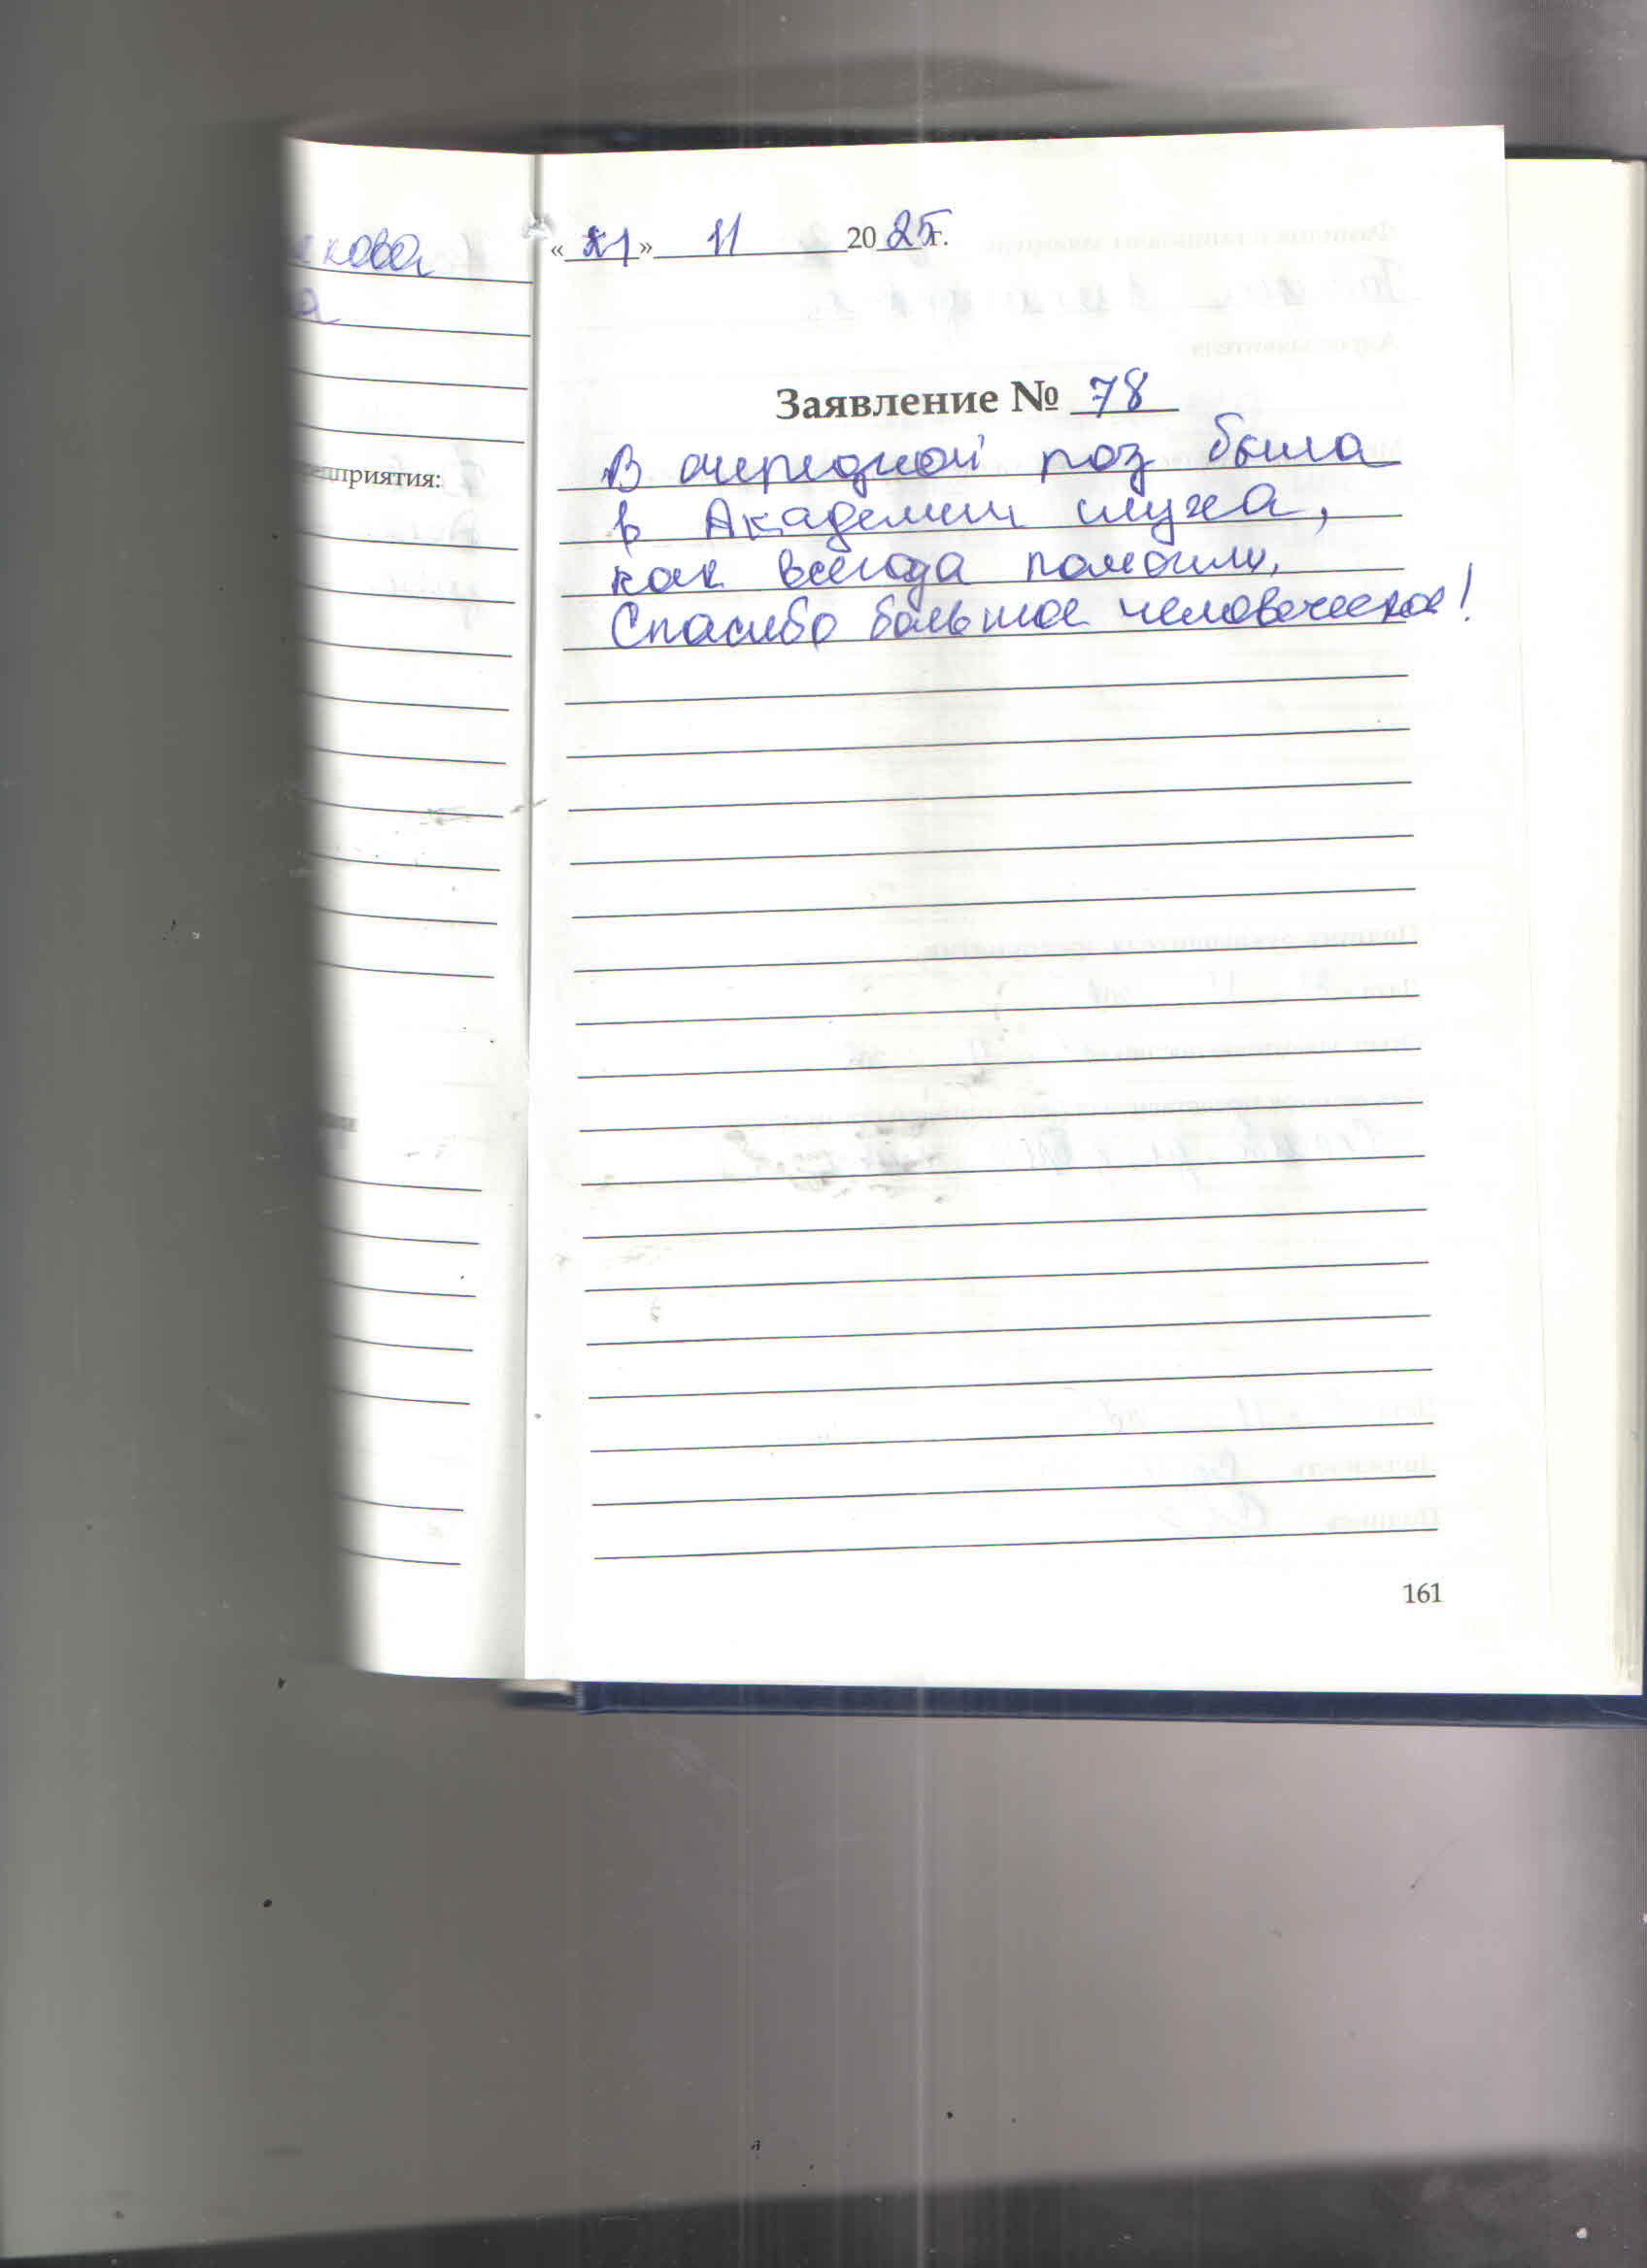 кова
а
едприятия:
«21» 11 2025г.
Заявление № 78
В очередной раз была
в Академии слуха,
как всегда помогли.
Спасибо большое человеческое!
161